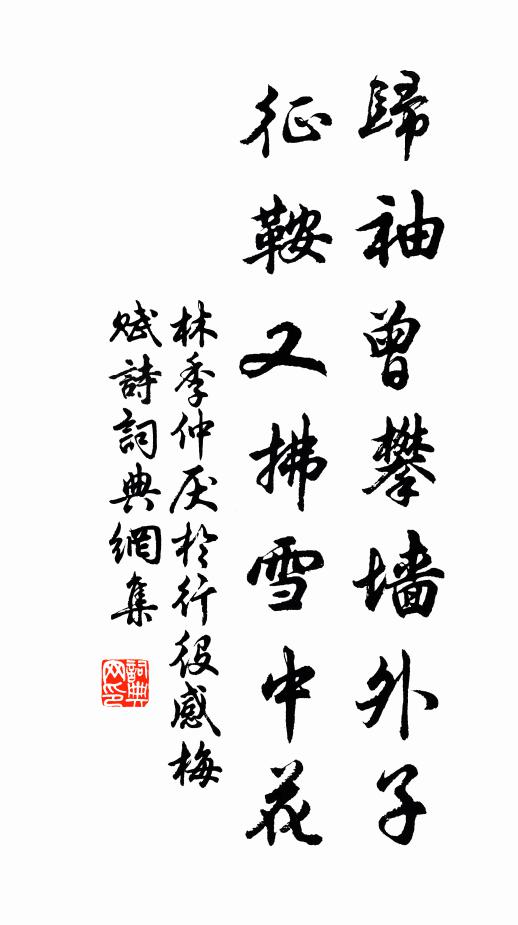 歸袖曾攀墻外子
征鞍又拂雪中花
林季仲厌於行役感梅
賦詩詞典網集
詞典网印